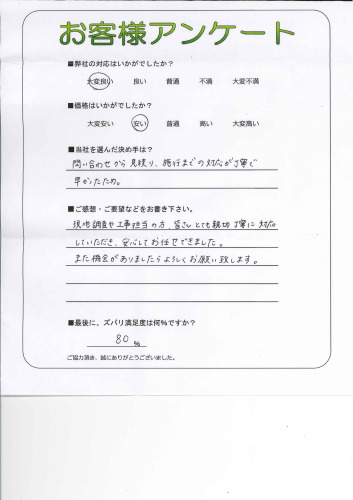 お客様アンケート
■弊社の対応はいかがでしたか？
大変良い 良い 普通 不満 大変不満
■価格はいかがでしたか？
大変安い 安い 普通 高い 大変高い
■当社を選んだ決め手は？
問い合わせから見積り、施行までの対応が丁寧で
早かったため。
■ご感想・ご要望などをお書き下さい。
現地調査や工事担当の方、皆さんとても親切丁寧に対応
していただき、安心してお任せできました。
また機会がありましたらよろしくお願い致します。
■最後に、ズバリ満足度は何％ですか？
80 ％
ご協力頂き、誠にありがとうございました。